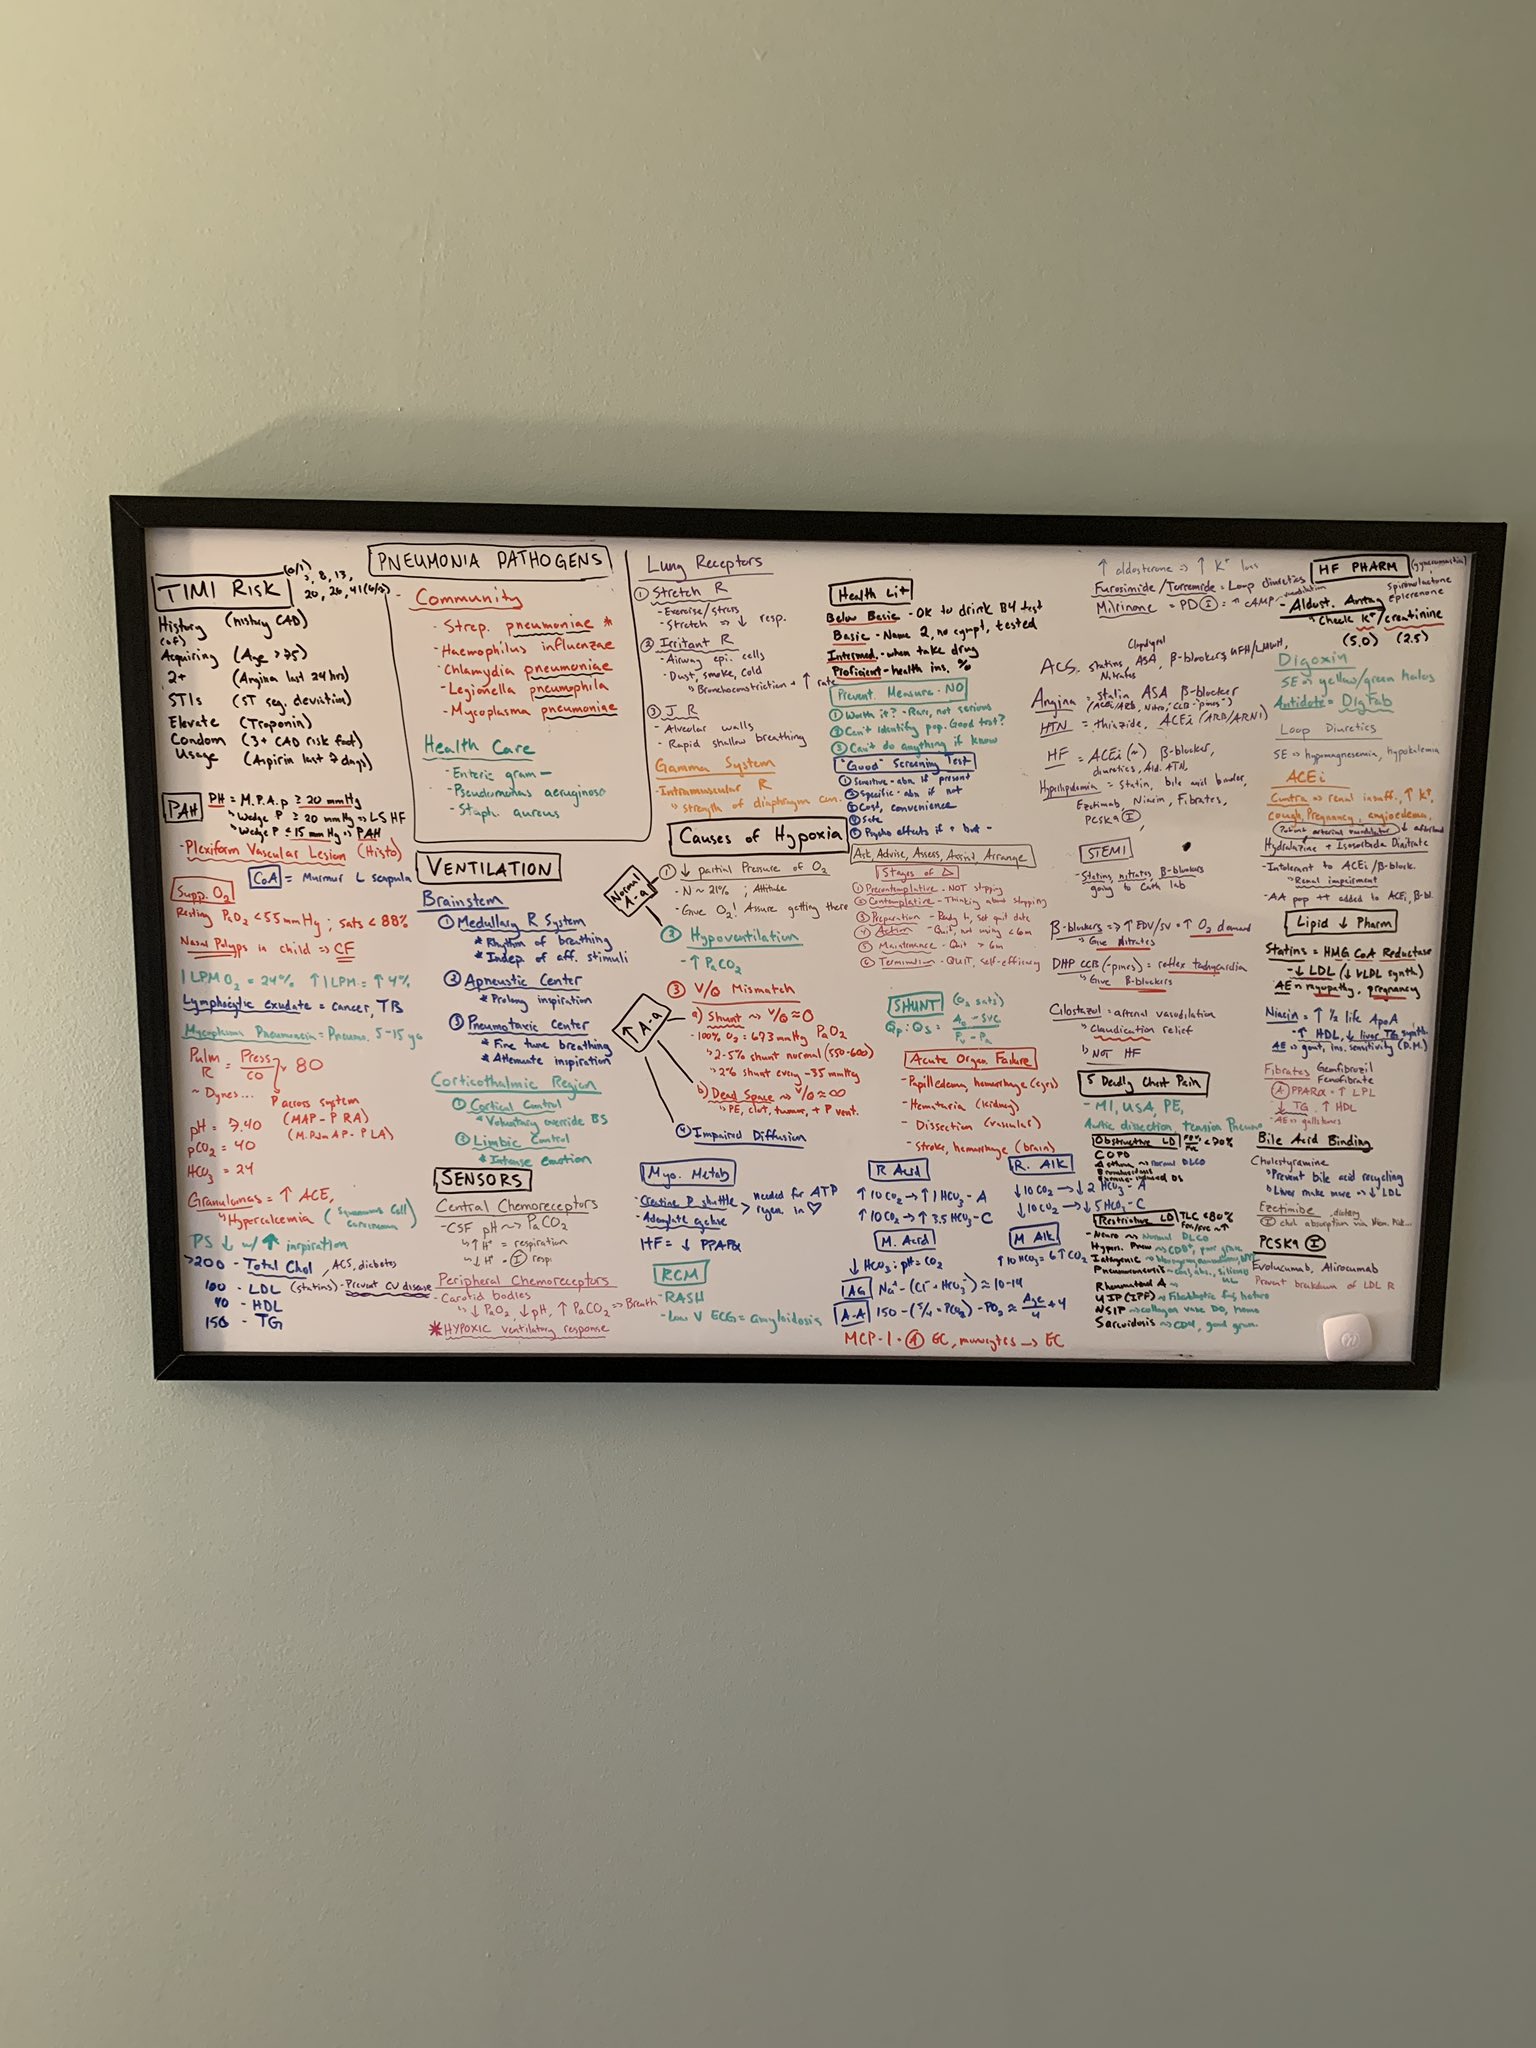 TIMI Risk
(0/1)
5, 8, 13,
20, 26, 41 (6/7)
History (history CAD)
(of)
Acquiring (Age >75)
2+ (Angina last 24 hrs)
STIs (ST seg. deviation)
Elevate (Troponin)
Condom (3+ CAD risk fact)
Usage (Aspirin last 7 days)
PAH
PH = M.P.A.p ≥ 20 mmHg
Wedge P ≥ 20 mmHg → LS HF
Wedge P ≤ 15 mmHg → PAH
- Plexiform Vascular Lesion (Histo)
CoA = Murmur L scapula
Supp. O2
Resting PaO2 < 55 mmHg ; sats < 88%
Nasal Polyps in child => CF
1 LPM O2 = 24% ↑ 1 LPM = ↑ 4%
Lymphocytic exudate = cancer, TB
Mycoplasma Pneumoniae = Pneumo. 5-15 yo
Pulm R = Press/CO > 80
~ Dynes...
P across system
(MAP - P RA)
(M.Pulm AP - P LA)
pH = 7.40
pCO2 = 40
HCO3 = 24
Granulomas = ↑ ACE,
Hypercalcemia (Squamous Cell carcinoma)
PS ↓ w/ ↑ inspiration
>200 - Total Chol, ACS, diabetes
100 - LDL (statins) - Prevent CV disease
40 - HDL
150 - TG
PNEUMONIA PATHOGENS
- Community
- Strep. pneumoniae *
- Haemophilus influenzae
- Chlamydia pneumoniae
- Legionella pneumophila
- Mycoplasma pneumoniae
Health Care
- Enteric gram -
- Pseudomonas aeruginosa
- Staph. aureus
VENTILATION
Brainstem
① Medullary R System
* Rhythm of breathing
* Indep. of aff. stimuli
② Apneustic Center
* Prolong inspiration
③ Pneumotaxic Center
* Fine tune breathing
* Attenuate inspiration
Corticothalmic Region
① Cortical Control
* Voluntary override BS
② Limbic Control
* Intense emotion
SENSORS
Central Chemoreceptors
- CSF pH ~> PaCO2
↑ H+ = respiration
↓ H+ = Ⓘ resp
Peripheral Chemoreceptors
- Carotid bodies
↓ PaO2 ↓ pH, ↑ PaCO2 => Breath
* HYPOXIC ventilatory response
Lung Receptors
① Stretch R
- Exercise/stress
- Stretch => ↓ resp.
② Irritant R
- Airway epi. cells
- Dust, smoke, cold
Bronchoconstriction + ↑ rate
③ J R
- Alveolar walls
- Rapid shallow breathing
Gamma System
- Intramuscular R
strength of diaphragm con.
Causes of Hypoxia
Normal A-a
① ↓ partial Pressure of O2
- N ~ 21% ; Altitude
- Give O2! Assure getting there
② Hypoventilation
- ↑ PaCO2
↑ A-a
③ V/Q Mismatch
a) Shunt ~> V/Q ≈ 0
- 100% O2 = 673 mmHg PaO2
2-5% shunt normal (550-600)
2% shunt every -35 mmHg
b) Dead Space ~> V/Q ≈ ∞
PE, clot, tumor, + P vent.
④ Impaired Diffusion
Myo. Metab
- Creatine P shuttle
- Adenylate cyclase
> needed for ATP regen in ♡
HF = ↓ PPARα
RCM
- RASH
- Low V ECG = amyloidosis
Health Lit
Below Basic - OK to drink B4 test
Basic - Name 2, no sympt, tested
Intermed. - when take drug
Proficient - health ins. %
Prevent. Measure - NO
① Worth it? - Rare, not serious
② Can't identify pop. Good test?
③ Can't do anything if know
"Good" Screening Test
① Sensitive - abn if present
② Specific - abn if not
③ Cost, convenience
④ Safe
⑤ Psycho effects if + but -
Ask, Advise, Assess, Assist, Arrange
Stages of Δ
① Precontemplative - NOT stopping
② Contemplative - Thinking about stopping
③ Preparation - Ready to, set quit date
④ Action - Quit, not using <6m
⑤ Maintenance - Quit > 6m
⑥ Termination - QUIT, self-efficacy
SHUNT (O2 sats)
Qp:Qs = Ao - SVC / Pv - Pa
Acute Organ Failure
- Papilledema, hemorrhage (eyes)
- Hematuria (kidney)
- Dissection (vascular)
- Stroke, hemorrhage (brain)
R Acid
↑ 10 CO2 → ↑ 1 HCO3 - A
↑ 10 CO2 → ↑ 3.5 HCO3 - C
R. Alk
↓ 10 CO2 → ↓ 2 HCO3 - A
↓ 10 CO2 → ↓ 5 HCO3 - C
M. Acid
↓ HCO3 : pH = CO2
M Alk
↑ 10 HCO3 = 6 ↑ CO2
AG Na+ - (Cl- + HCO3-) ≈ 10-14
A-A 150 - (5/4 × PCO2) - PO2 ≈ Age/4 + 4
MCP-1 - Ⓐ EC, monocytes → EC
↑ aldosterone => ↑ K+ loss
Furosimide/Torsemide = Loop diuretics
Milrinone = PD Ⓘ = ↑ cAMP
ACS. Statins, ASA, Clopidogrel β-blockers, UFH/LMWH,
Nitrates
Angina = statin ASA β-blocker
(ACEi/ARB, Nitro, CCB "-pines")
HTN = thiazide, ACEi (ARB/ARNI)
HF = ACEi (~) β-blocker,
diuretics, Ald. ATN,
Hyperlipidemia = Statin, bile acid binder,
Ezetimib, Niacin, Fibrates,
PCSK9 Ⓘ
STEMI
- Statins, nitrates, β-blockers
going to Cath lab
β-blockers => ↑ EDV/SV = ↑ O2 demand
Give Nitrates
DHP CCB (-pines) = reflex tachycardia
Give β-blockers
Cilostazol = arterial vasodilation
Claudication relief
NOT HF
5 Deadly Chest Pain
- MI, USA, PE,
Aortic dissection, tension Pneumo
Obstructive LD FEV1/FVC < 70%
COPD
Asthma ~> Normal DLCO
Restrictive LD TLC < 80%
FEV1/FVC ~ ↑
- Neuro ~> Normal DLCO
Hypers. Pneu
Iatrogenic
Pneumoconosis
Rheumatoid A
UIP (IPF) ~> Fibroblastic foci, hetero
NSIP ~> collagen vasc DO, homo
Sarcoidosis ~> CD4, good gran.
HF PHARM
(gynecomastia)
- Aldost. Antag
spironolactone
eplerenone
"Check K+/creatinine
(5.0) (2.5)
Digoxin
SE => yellow/green halos
Antidote = DigFab
Loop Diuretics
SE => hypomagnesemia, hypokalemia
ACEi
Contra => renal insuff., ↑ K+,
cough, Pregnancy, angioedema,
Hydralazine + Isosorbide Dinitrate
- Intolerant to ACEi/β-block.
Renal impairment
- AA pop ++ added to ACEi, β-bl.
Lipid ↓ Pharm
Statins = HMG CoA Reductase
- ↓ LDL (↓ VLDL synth)
AE = myopathy, pregnancy
Niacin = ↑ ½ life ApoA
- ↑ HDL, ↓ liver TG synth.
AE => gout, ins. sensitivity (D.M.)
Fibrates Gemfibrozil
Fenofibrate
Ⓐ PPARα = ↑ LPL
↓ TG, ↑ HDL
- AE = gallstones
Bile Acid Binding
Cholestyramine
Prevent bile acid recycling
Liver make more => ↓ LDL
Ezetimibe
Ⓘ dietary chol absorption via
PCSK9 Ⓘ
Evolucumab, Alirocumab
Prevent breakdown of LDL R